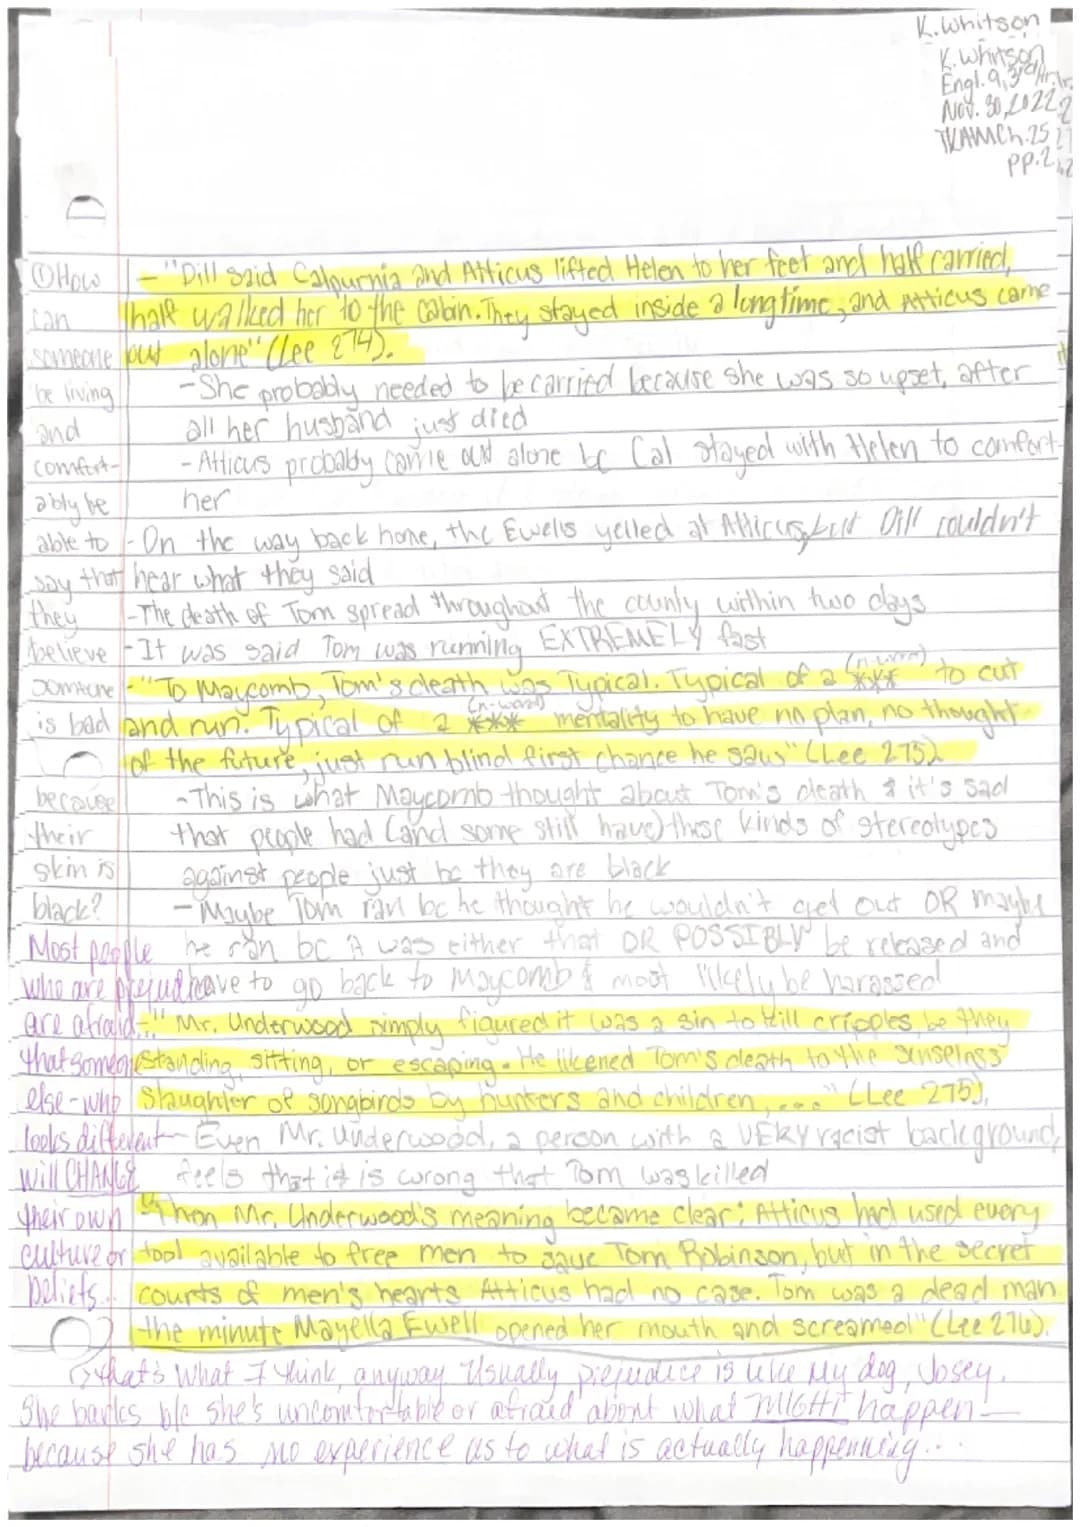 K. Whitson
K. Whitson
Engl. 9, 3rd Hr.
Nov. 30, 2022
TKAM Ch. 25
pp. 2
① How
can
someone
be living
and
comfort-
ably be
able to
say that
they
believe
someone
is bad
because
their
skin is
black?
Most people
who are prejud
are afraid
that someone
else - who
looks different
will CHANGE
their own
culture or
beliefs..
- "Dill said Calpurnia and Atticus lifted Helen to her feet and half carried,
half walked her to the cabin. They stayed inside a long time, and Atticus came
out alone" (Lee 274).
- She probably needed to be carried because she was so upset, after
all her husband just died
- Atticus probably came out alone bc Cal stayed with Helen to comfort
her
- On the way back home, the Ewells yelled at Atticus, but Dill couldn't
hear what they said
- The death of Tom spread throughout the county within two days
- It was said Tom was running EXTREMELY fast
- "To Maycomb, Tom's death was Typical. Typical of a *** (n-word) to cut
and run. Typical of a *** (n-word) mentality to have no plan, no thought
of the future, just run blind first chance he saw" (Lee 275).
- This is what Maycomb thought about Tom's death & it's sad
that people had (and some still have) these kinds of stereotypes
against people just bc they are black
- Maybe Tom ran bc he thought he wouldn't get out OR maybe
he ran bc it was either that OR POSSIBLY be released and
have to go back to Maycomb & most likely be harassed
- " Mr. Underwood simply figured it was a sin to kill cripples, be they
standing, sitting, or escaping. He likened Tom's death to the senseless
slaughter of songbirds by hunters and children, ..." (Lee 275).
- Even Mr. Underwood, a person with a VERY racist background,
feels that it is wrong that Tom was killed
- "Then Mr. Underwood's meaning became clear: Atticus had used every
tool available to free men to save Tom Robinson, but in the secret
courts of men's hearts Atticus had no case. Tom was a dead man
the minute Mayella Ewell opened her mouth and screamed" (Lee 276).
that's what I think, anyway. Usually prejudice is like my dog, Josey.
She barks b/c she's uncomfortable or afraid about what MIGHT happen—
because she has no experience as to what is actually happenning...